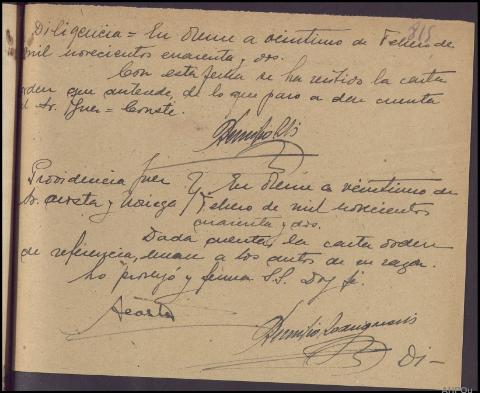 815
Diligencia = En Orense a veintiuno de Febrero de
mil novecientos cuarenta y dos.
Con esta fecha se ha recibido la carta
orden que antecede, de lo que paso a dar cuenta
al Sr. Juez = Consté.
Providencia Juez } En Orense a veintiuno de
Sr. Acosta y Noriega / Febrero de mil novecientos
cuarenta y dos.
Dada cuenta, la carta orden
de referencia, únase a los autos de su razón.
Lo proveyó y firma S.S. Doy fé.
Acosta
Di-
AHPOu